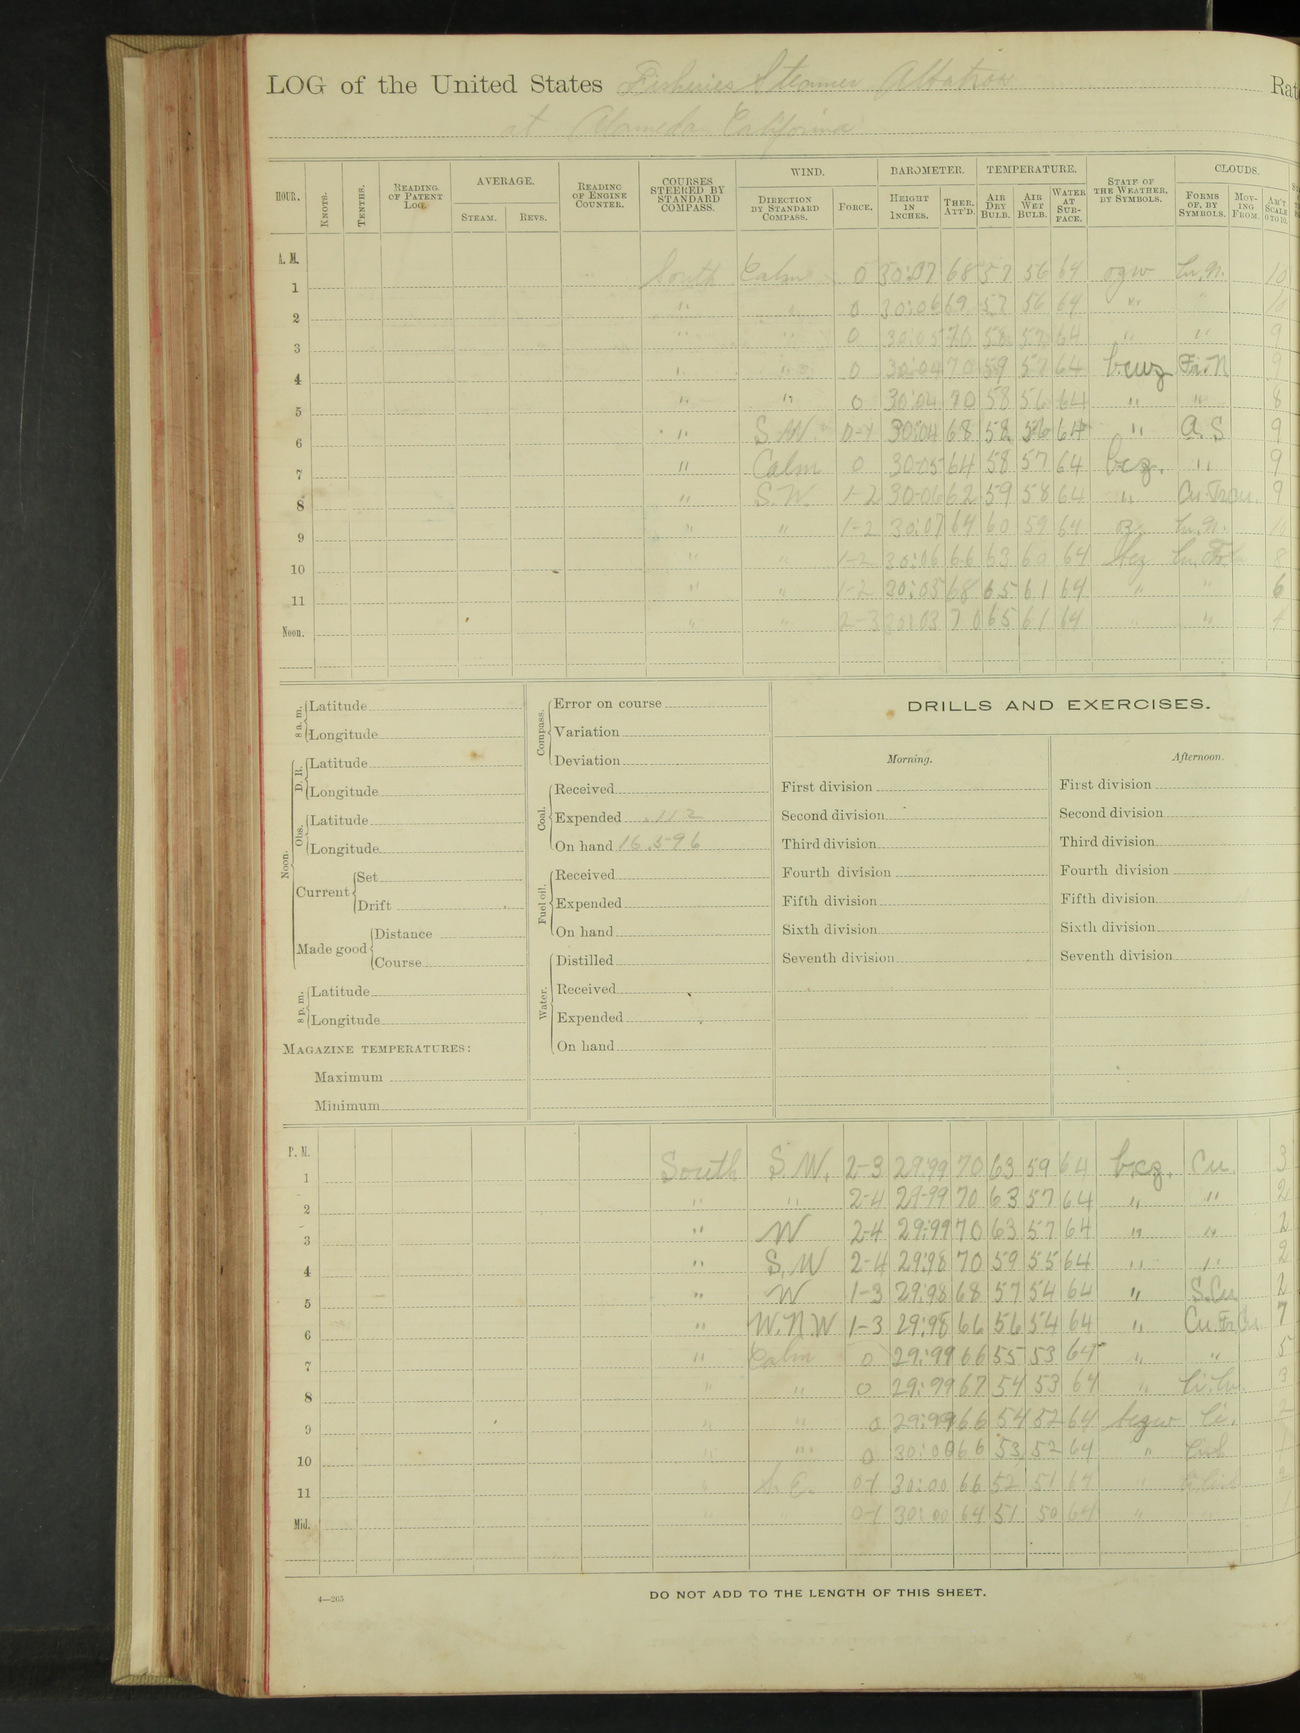 LOG of the United States Fisheries Steamer Albatross Rat
at Alameda California
HOUR. KNOTS. TENTHS. READING OF PATENT LOG. AVERAGE. STEAM. REVS. READING OF ENGINE COUNTER. COURSES STEERED BY STANDARD COMPASS. WIND. DIRECTION BY STANDARD COMPASS. FORCE. BAROMETER. HEIGHT IN INCHES. THER. ATT'D. TEMPERATURE. AIR DRY BULB. AIR WET BULB. WATER AT SURFACE. STATE OF THE WEATHER, BY SYMBOLS. CLOUDS. FORMS OF, BY SYMBOLS. MOVING FROM. AM'T SCALE 0 TO 10.
A. M.
1 South Calm 0 30.07 68 57 56 64 ogw Cu.N. 10
2 " " 0 30.06 69 57 56 64 " " 10
3 " " 0 30.05 70 58 57 64 " " 9
4 " " 0 30.04 70 59 57 64 bcwz Fr.N 9
5 " " 0 30.04 70 58 56 64 " " 8
6 " S.W. 0-1 30.04 68 58 56 64 " A.S 9
7 " Calm 0 30.05 64 58 57 64 bcz. " 9
8 " S.W. 1-2 30.06 62 59 58 64 " Cu.Fr.Cu. 9
9 " " 1-2 30.07 64 60 59 64 oz Cu.N. 10
10 " " 1-2 30.06 66 63 60 64 bcz Cu.Fr.Cu 8
11 " " 1-2 30.05 68 65 61 64 " " 6
Noon. " " 2-3 30.03 70 65 61 64 " " 4
8 a. m. Latitude
Longitude
Noon. D. R. Latitude
Longitude
Obs. Latitude
Longitude
Current Set
Drift
Made good Distance
Course
8 p. m. Latitude
Longitude
MAGAZINE TEMPERATURES:
Maximum
Minimum
Compass. Error on course
Variation
Deviation
Coal. Received
Expended .112
On hand 16.596
Fuel oil. Received
Expended
On hand
Water. Distilled
Received
Expended
On hand
DRILLS AND EXERCISES.
Morning. Afternoon.
First division First division
Second division Second division
Third division Third division
Fourth division Fourth division
Fifth division Fifth division
Sixth division Sixth division
Seventh division Seventh division
P. M.
1 South S.W. 2-3 29.99 70 63 59 64 bcz. Cu. 3
2 " " 2-4 29.99 70 63 57 64 " " 2
3 " W 2-4 29.99 70 63 57 64 " " 2
4 " S.W 2-4 29.98 70 59 55 64 " " 2
5 " W 1-3 29.98 68 57 54 64 " S.Cu 2
6 " W.N.W 1-3 29.98 66 56 54 64 " Cu.Fr.Cu. 7
7 " Calm 0 29.99 66 55 53 64 " " 5
8 " " 0 29.99 67 54 53 64 " Ci.Cu. 3
9 " " 0 29.99 66 54 52 64 bcgw Ci. 2
10 " " 0 30.00 66 53 52 64 " CiS 1
11 " S.E. 0-1 30.00 66 52 51 64 " 2
Mid. " " 0-1 30.00 64 51 50 64 " " 1
4—205
DO NOT ADD TO THE LENGTH OF THIS SHEET.